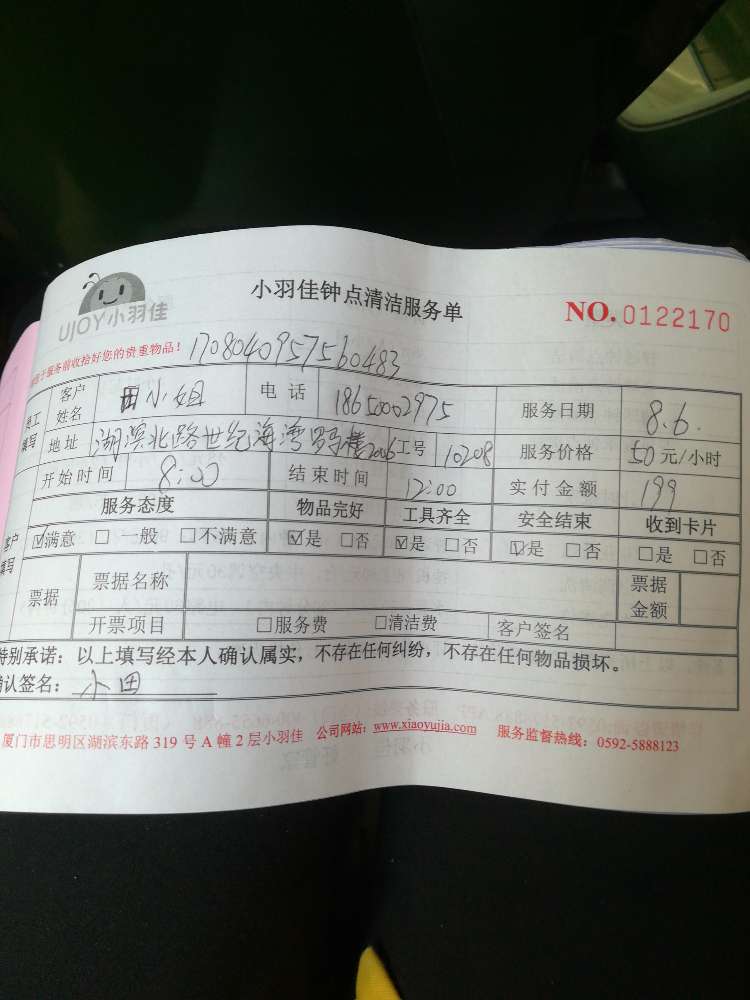 UJOY小羽佳
小羽佳钟点清洁服务单
NO.0122170
服务前收拾好您的贵重物品！ 170804095756 0483
员工填写 客户姓名 田小姐 电话 18650002975 服务日期 8.6.
地址 湖滨北路世纪海湾 2006 工号 10208 服务价格 50元/小时
开始时间 8:00 结束时间 12:00 实付金额 199
服务态度 物品完好 工具齐全 安全结束 收到卡片
客户填写 ☑满意 □一般 □不满意 ☑是 □否 ☑是 □否 ☑是 □否 □是 □否
票据 票据名称 票据金额
开票项目 □服务费 □清洁费 客户签名
特别承诺：以上填写经本人确认属实，不存在任何纠纷，不存在任何物品损坏。
确认签名：小田
厦门市思明区湖滨东路 319 号 A 幢 2 层小羽佳 公司网站：www.xiaoyujia.com 服务监督热线：0592-5888123